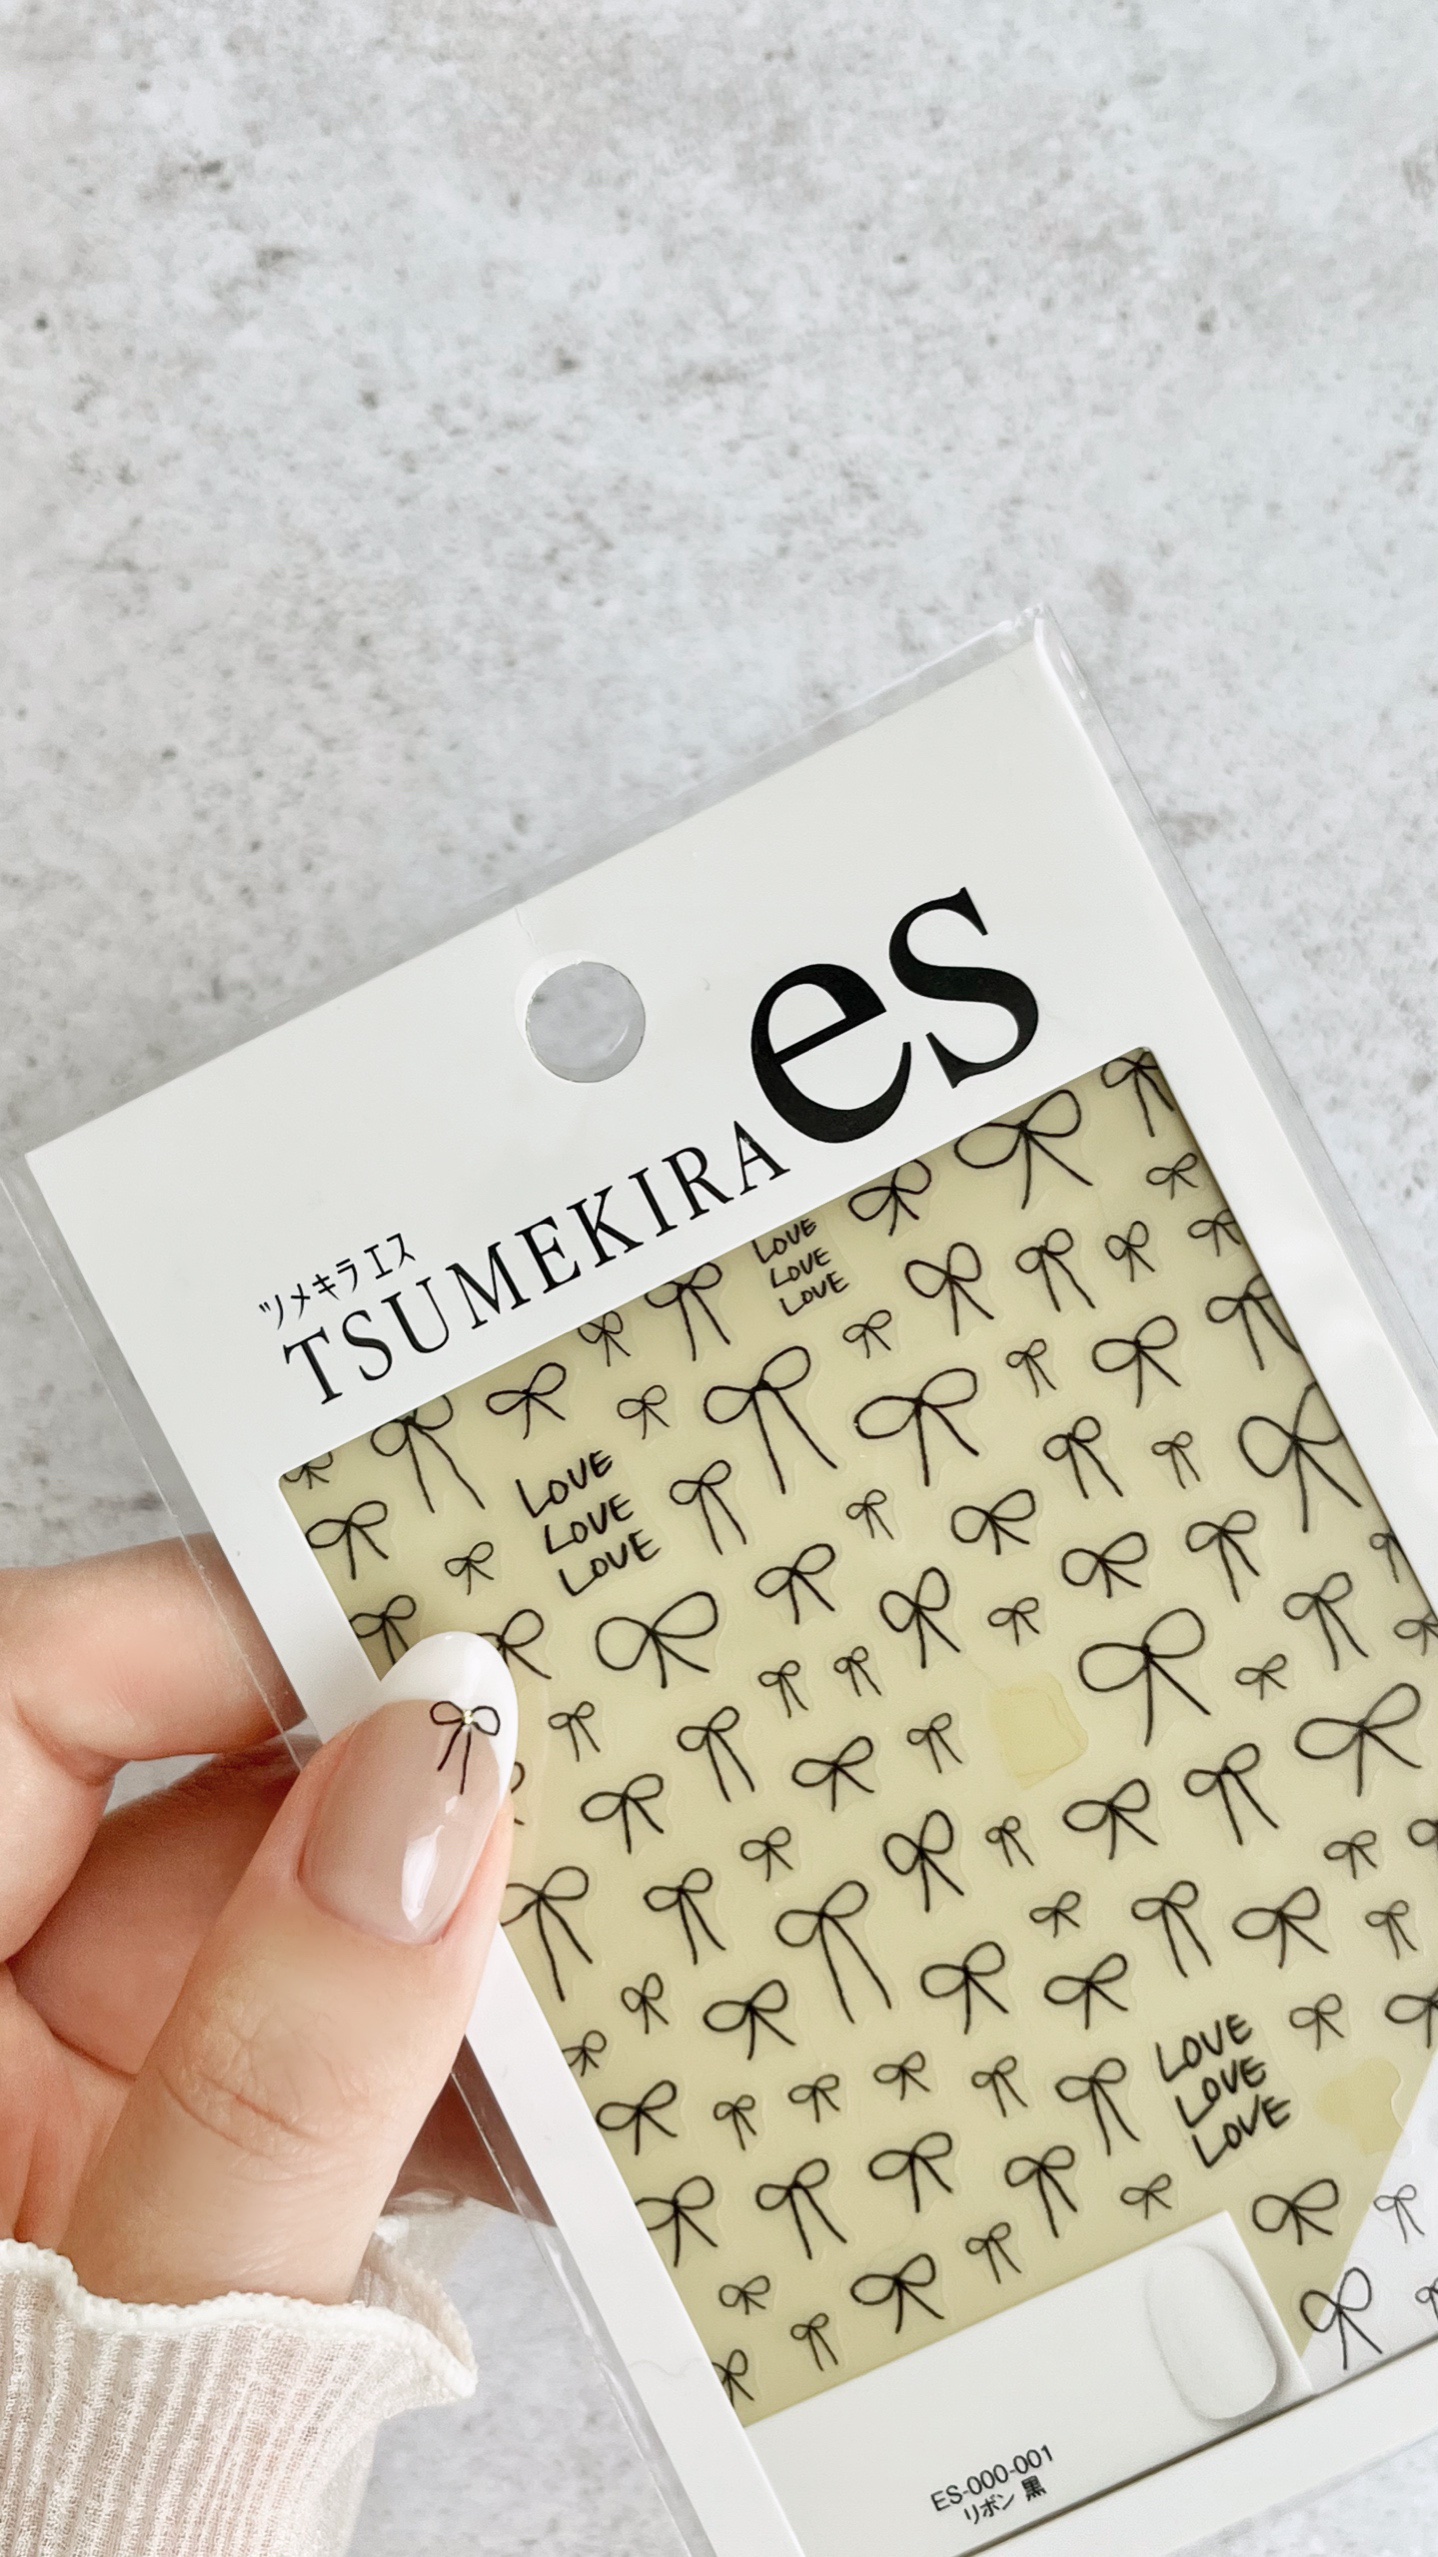 ツメキラエス
TSUMEKIRA es
LOVE
LOVE
LOVE
LOVE
LOVE
LOVE
LOVE
LOVE
LOVE
ES-000-001
リボン 黒